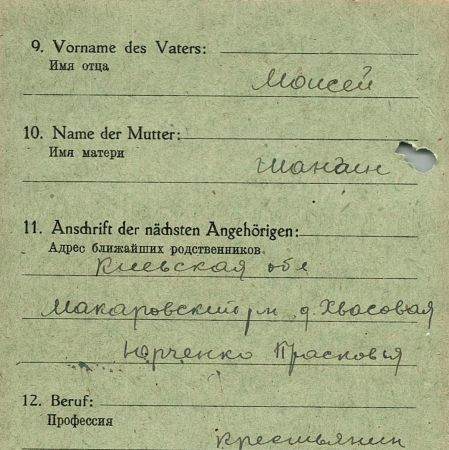 9. Vorname des Vaters:
Имя отца
Моисей
10. Name der Mutter:
Имя матери
11. Anschrift der nächsten Angehörigen:
Адрес ближайших родственников
Киевская обл
Макаровский д. Хвасовая
Юрченко Прасковья
12. Beruf:
Профессия
крестьянин